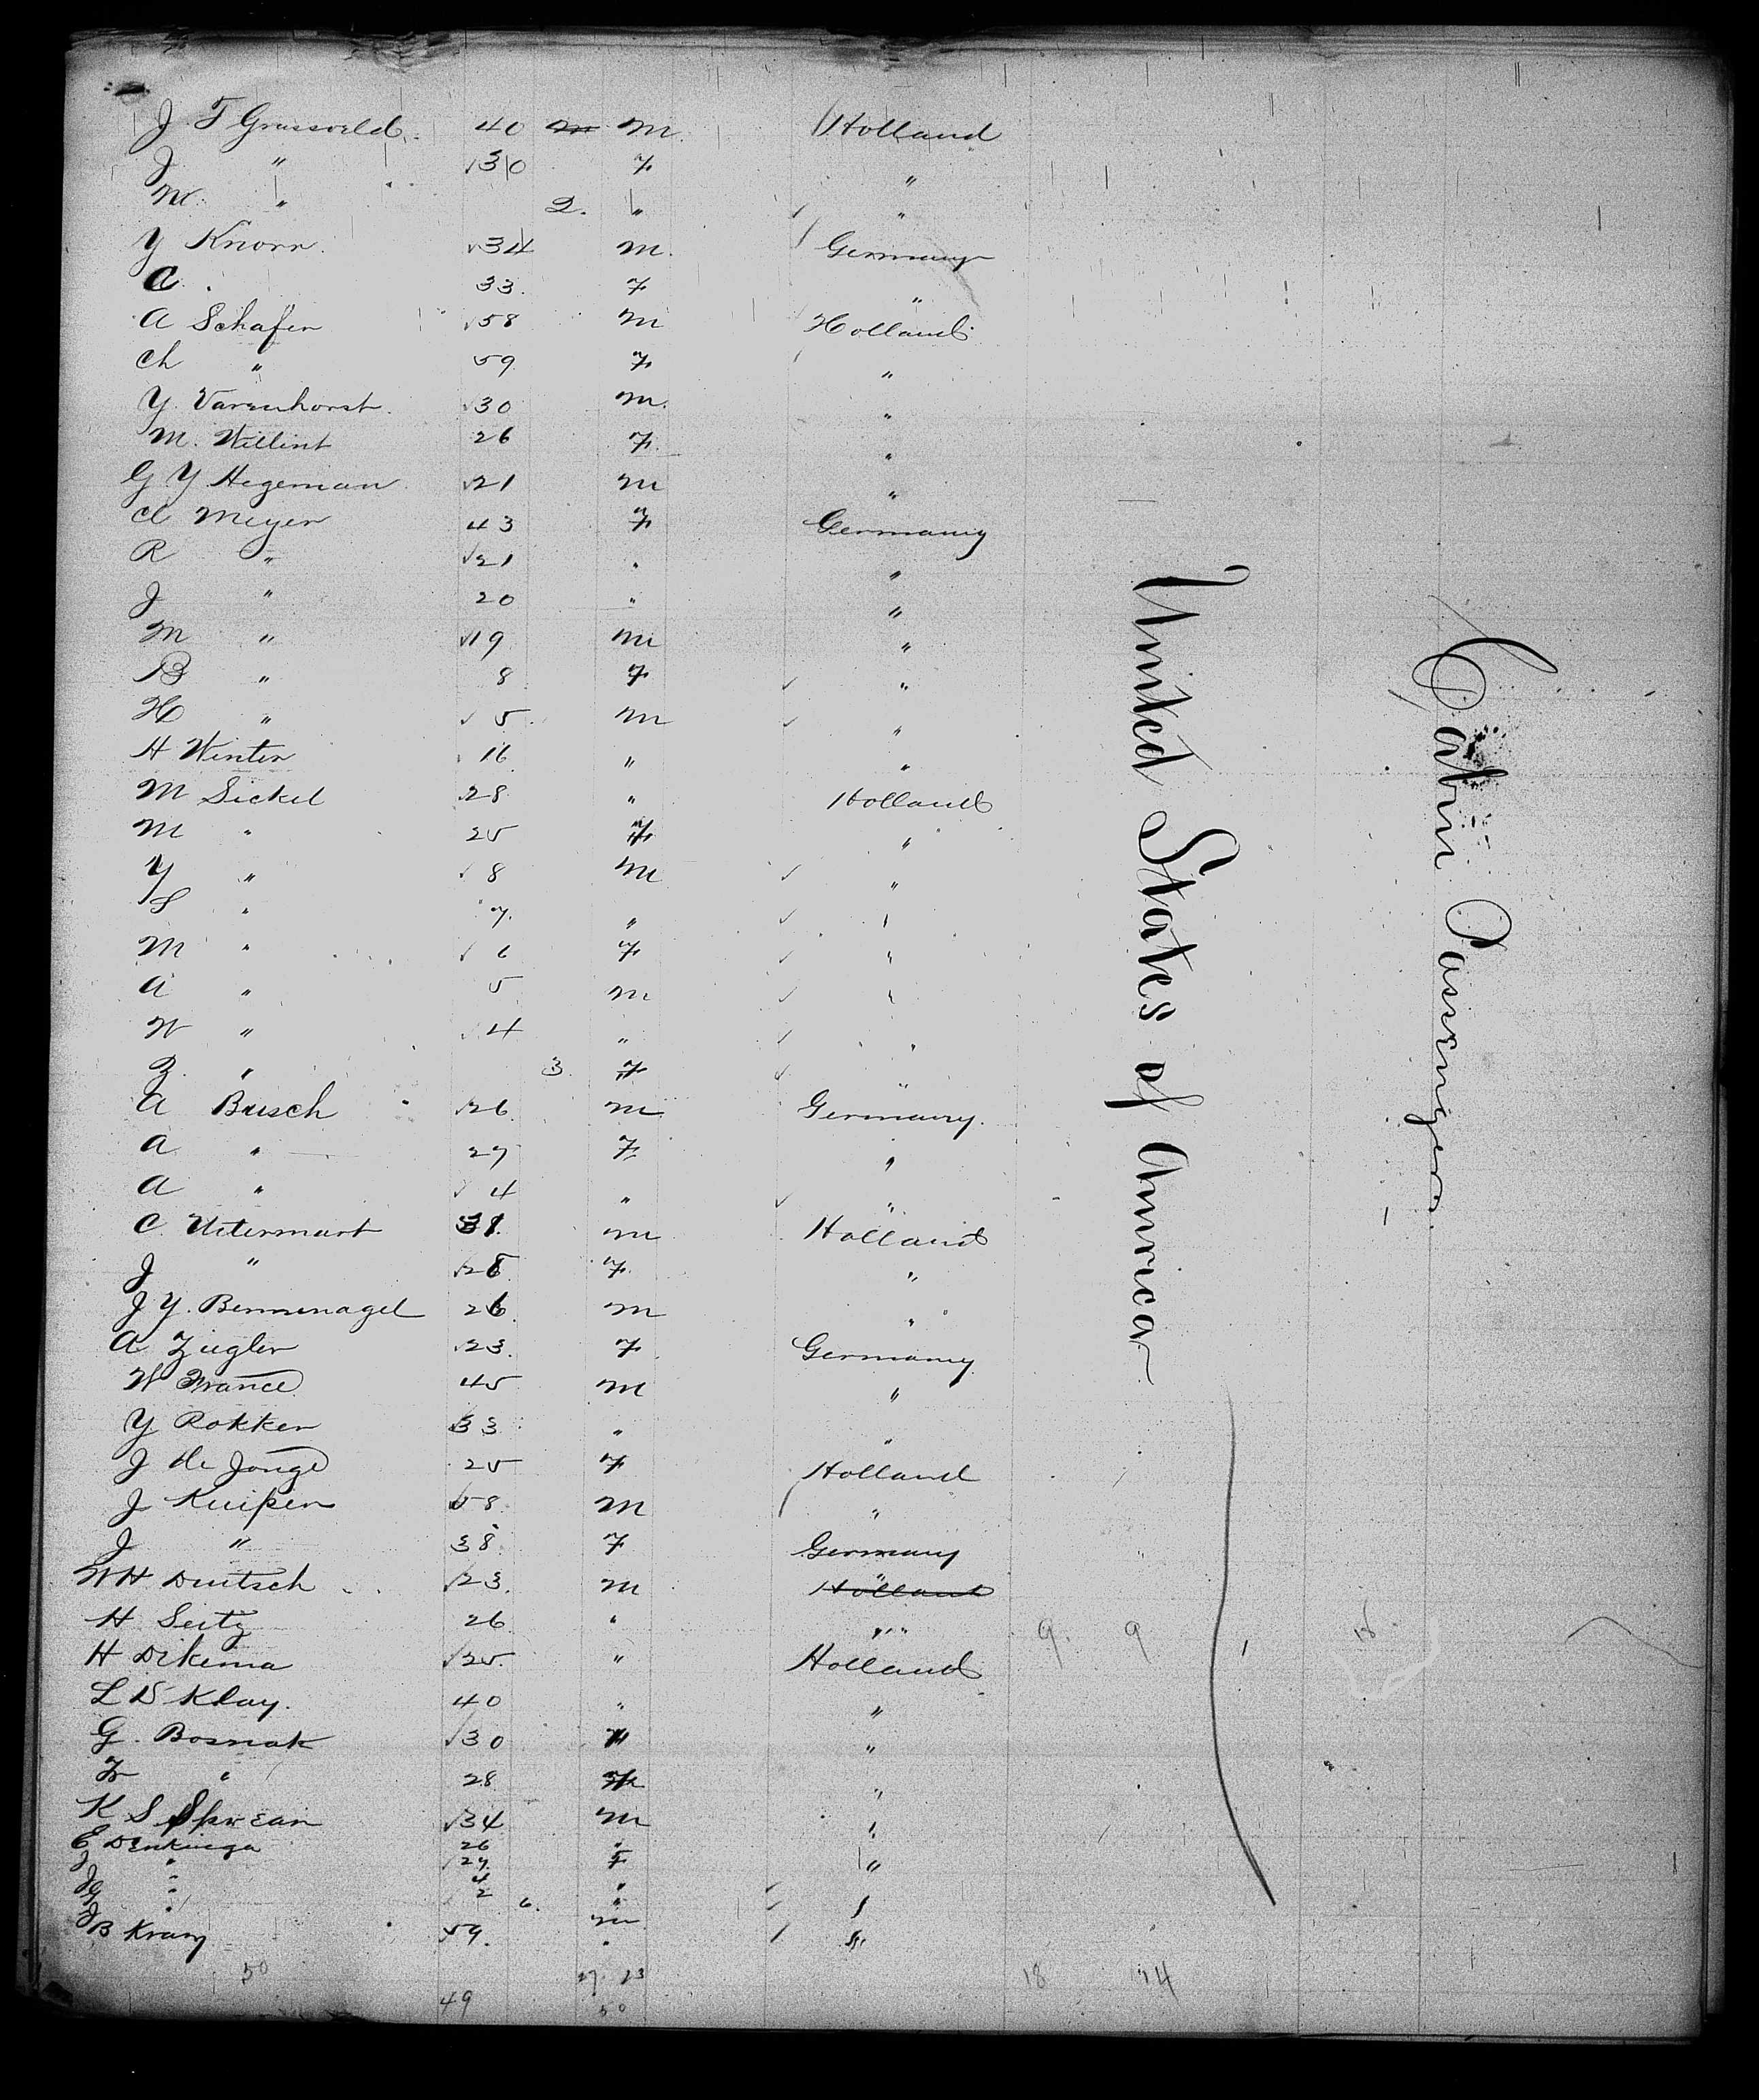 J. F Grasveld. 40 M. Holland
J " 30 F "
M. " 2. " "
Y Knorr. 34 M. Germany
C. 33. F "
A Schafer 58 M Holland
Ch " 59 F "
Y. Varenhorst. 30 M. "
M. Willint 26 F. "
G Y Hegeman 21 M "
Cl Meyer 43 F Germany
R " 21 " "
J " 20 " "
M " 19 M "
B " 8 F "
H " 5 M "
H Winter 16 " "
M Sickel 28 " Holland
M " 25 F "
Y " 8 M "
S " 7. " "
M " 6 F "
A " 5 M "
W " 4 " "
Z. " 3. F "
A Busch 26. M Germany.
A " 27 F "
A " 4 " "
C. Uitermart 31. M Holland
J " 28 F. "
J Y. Bennenagel 26. M "
A. Ziegler 23. F Germany
W France 45 M "
Y Rokker 33 " "
J de Jonge 25 F Holland
J Kuiper 58. M "
J " 38 F Germany
WH Deutsch 23. M Holland "
H. Seitz 26 " "
H Dikema 25. " Holland
L D Klay. 40 " "
G. Bosnak 30 "
Fr " 28
K S Sprean 34 M "
E Denkinga 26 "
J " 27. F "
J " 4 "
" 2 "
J " 6. M
B Krang 59. " "
50 27. 23 18 14
49 50
9. 9 18
United States of America
Cabin Passengers.